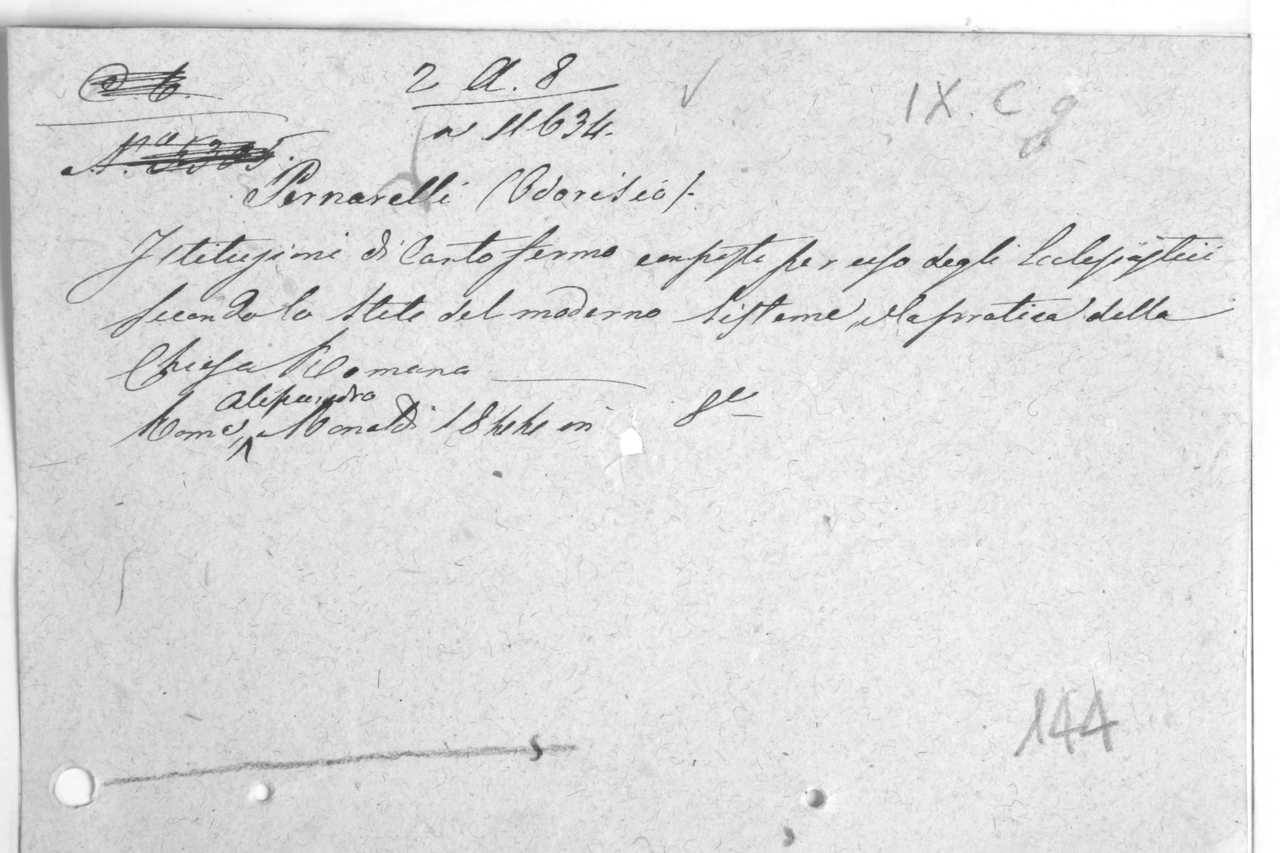 2 A. 8
IX. C g
n 11634.
Pernarelli (Odorisio).
Istituzioni di Canto fermo composte per uso degli Eclesiastici
secondo lo Stile del moderno Sisteme, e la pratica della
Chiesa Romana
Alessandro
Roma, Monaldi 1844 in 8º
144